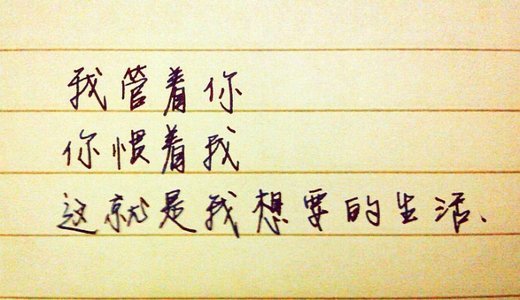 我管着你
你惯着我
这就是我想要的生活、